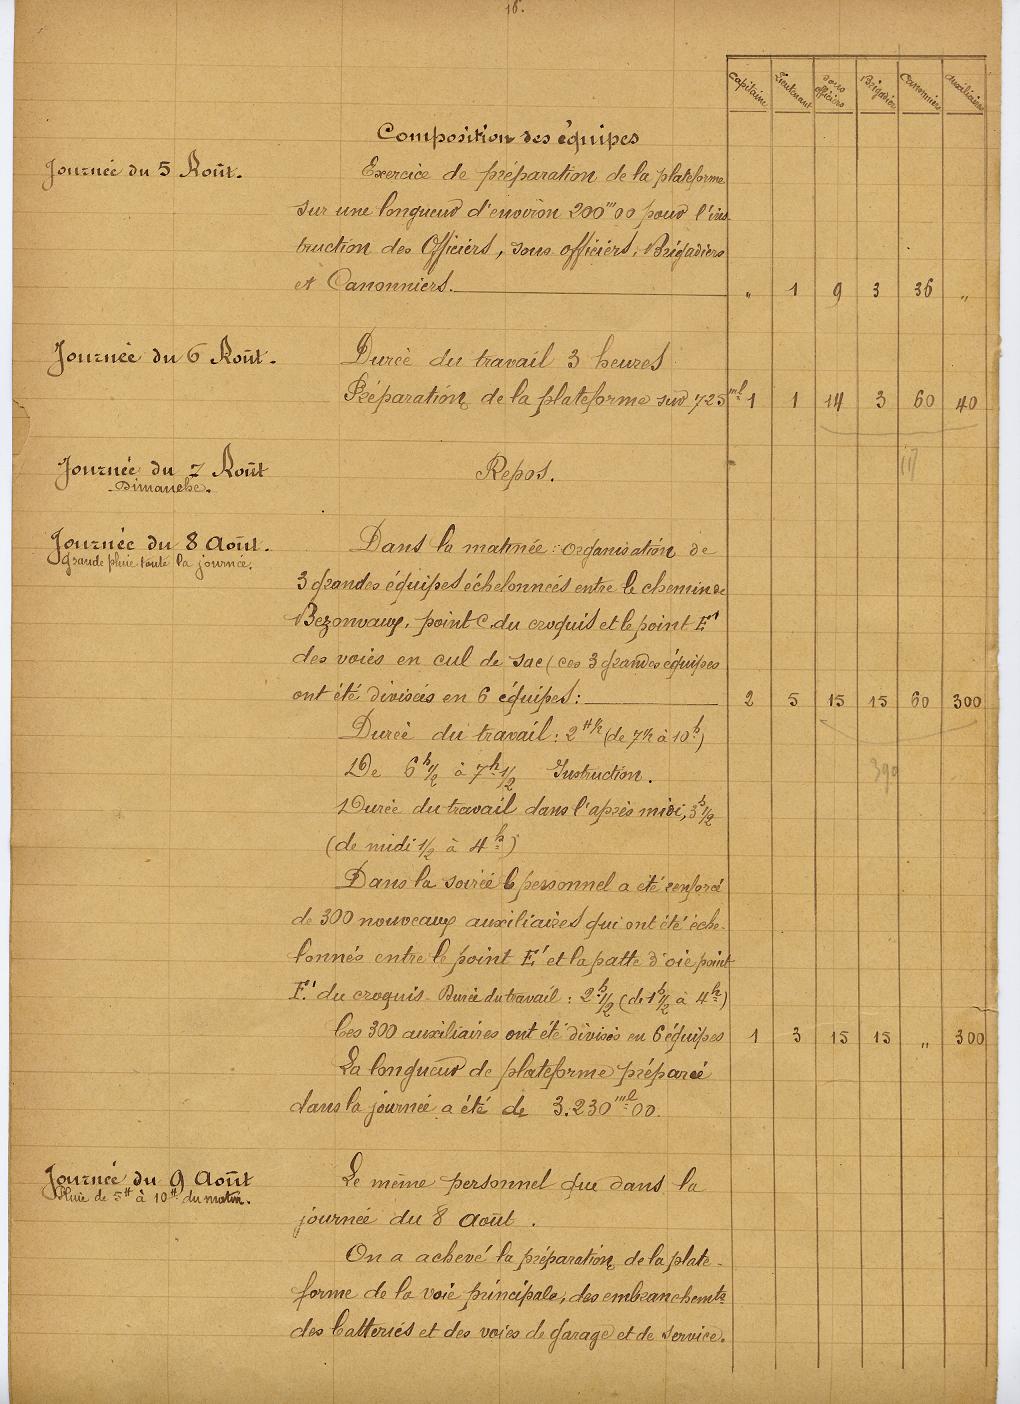 16.
Capitaine Lieutenant sous officiers Brigadiers Canonniers Auxiliaires
Composition des équipes
Journée du 5 Août. Exercice de préparation de la plateforme
sur une longueur d'environ 200m00 pour l'ins
truction des Officiers, sous officiers, Brigadiers
et Canonniers. „ 1 9 3 36 „
Journée du 6 Août. Durée du travail 3 heures
Préparation de la plateforme sur 725ml 1 1 14 3 60 40
Journée du 7 Août Repos.
Dimanche.
Journée du 8 Août. Dans la matinée : organisation de
Grande pluie toute la journée.
3 grandes équipes échelonnées entre le chemin de
Bezonvaux, point C. du croquis et le point E'
des voies en cul de sac (ces 3 grandes équipes
ont été divisées en 6 équipes : 2 5 15 15 60 300
Durée du travail : 2H1/2 (de 7h1/2 à 10h)
390
De 6h1/2 à 7h1/2 Instruction.
Durée du travail dans l'après midi, 3h1/2
(de midi 1/2 à 4h)
Dans la soirée le personnel a été renforcé
de 300 nouveaux auxiliaires qui ont été éche-
lonnés entre le point E' et la patte d'oie point
F.' du croquis. Durée du travail : 2h1/2 (de 1h1/2 à 4h)
Ces 300 auxiliaires ont été divisés en 6 équipes 1 3 15 15 „ 300
La longueur de plateforme préparée
dans la journée a été de 3.230ml00.
Journée du 9 Août Le même personnel que dans la
Pluie de 5H à 10H du matin.
journée du 8 Août.
On a achevé la préparation de la plate-
forme de la voie principale, des embranchemts
des batteries et des voies de garage et de service.